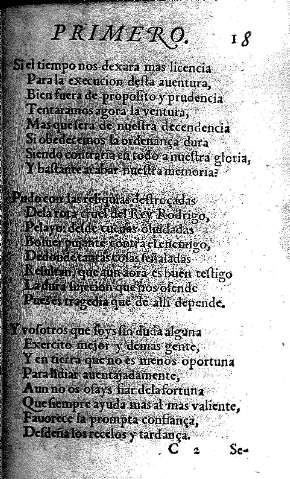 PRIMERO. 18
Si el tiempo nos dexara mas licencia
Para la execucion desta auentura,
Bien fuera de proposito y prudencia
Tentaramos agora la ventura,
Mas que sera de nuestra decendencia
Si obedecemos la ordenança dura
Siendo contraria en todo a nuestra gloria,
Y bastante acabar nuestra memoria?
Pudo con las reliquias destroçadas
De la rota cruel del Rey Rodrigo,
Pelayo, desde cueuas oluidadas
Boluer pujante contra el enemigo,
De donde tantas cosas señaladas
Resultan, que aun aora es buen testigo
La dura sujecion que nos ofende
Pues es tragedia que de alli depende.
Y vosotros que soys sin duda alguna
Exercito mejor y demas gente,
Y en tierra que no es menos oportuna
Para lidiar auentajadamente,
Aun no os osays fiar de la fortuna
Que siempre ayuda mas al mas valiente,
Fauorece la prompta confiança,
Desdeña los recelos y tardança.
C 2 Se-